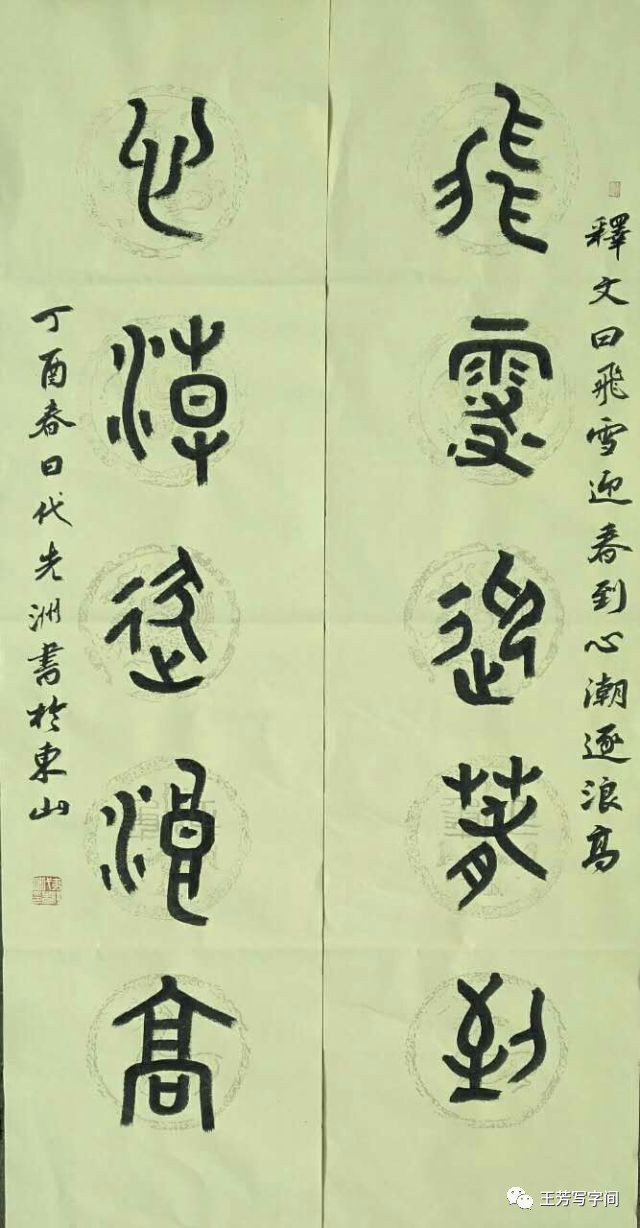 釋文曰飛雪迎春到心潮逐浪高
飛雪迎春到
心潮逐浪高
丁酉春日代先洲書於東山
王芳写字间